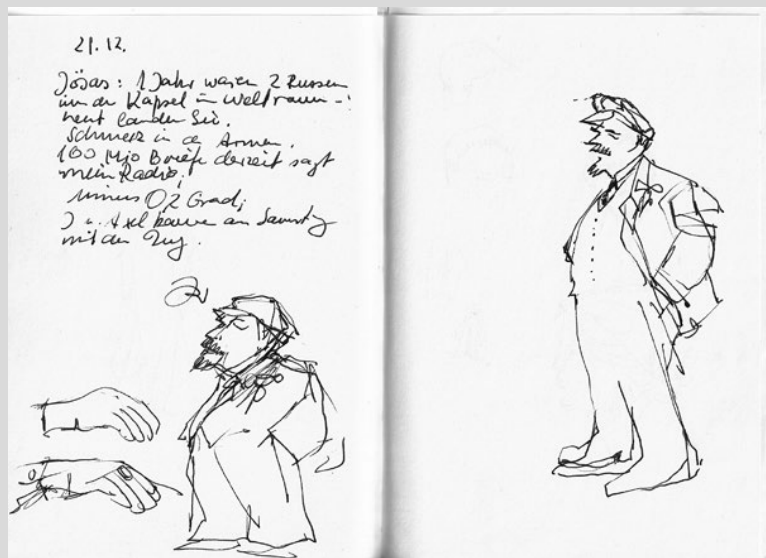 21.12.
Jösas: 1 Jahr waren 2 Russen
in der Kapsel im Weltraum -
heut landen Sie.
Schmerz in de Armen.
100 Mio Briefe derzeit sagt
mein Radio!
minus 0,2 Grad,
J u. Axel am Samstag
mit den Zug.